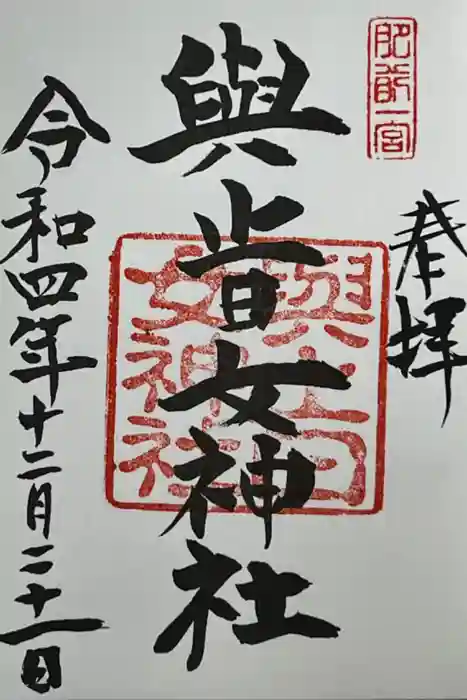 肥前一宮
奉拝
與止日女神社
與止日女神社
令和四年十二月二十一日